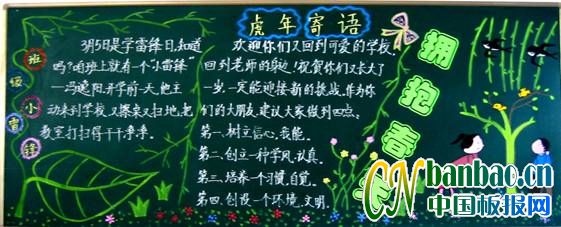 班级小雷锋
3月5日是学雷锋日,知道
吗?咱班上就有一个"小雷锋"
—冯逸阳开学前一天,他主
动来到学校,又擦桌又扫地,把
教室打扫得干干净净。
虎年寄语
欢迎你们又回到可爱的学校,
回到老师的身边!祝贺你们又长大了
一岁,一定能迎接新的挑战,作为你
们的大朋友,建议大家做到四点:
第一、树立信心,我能。
第二、创立一种学风,认真。
第三、培养一个习惯,自觉。
第四、创设一个环境,文明。
拥抱春
CNbanbao.cn
中国板报网